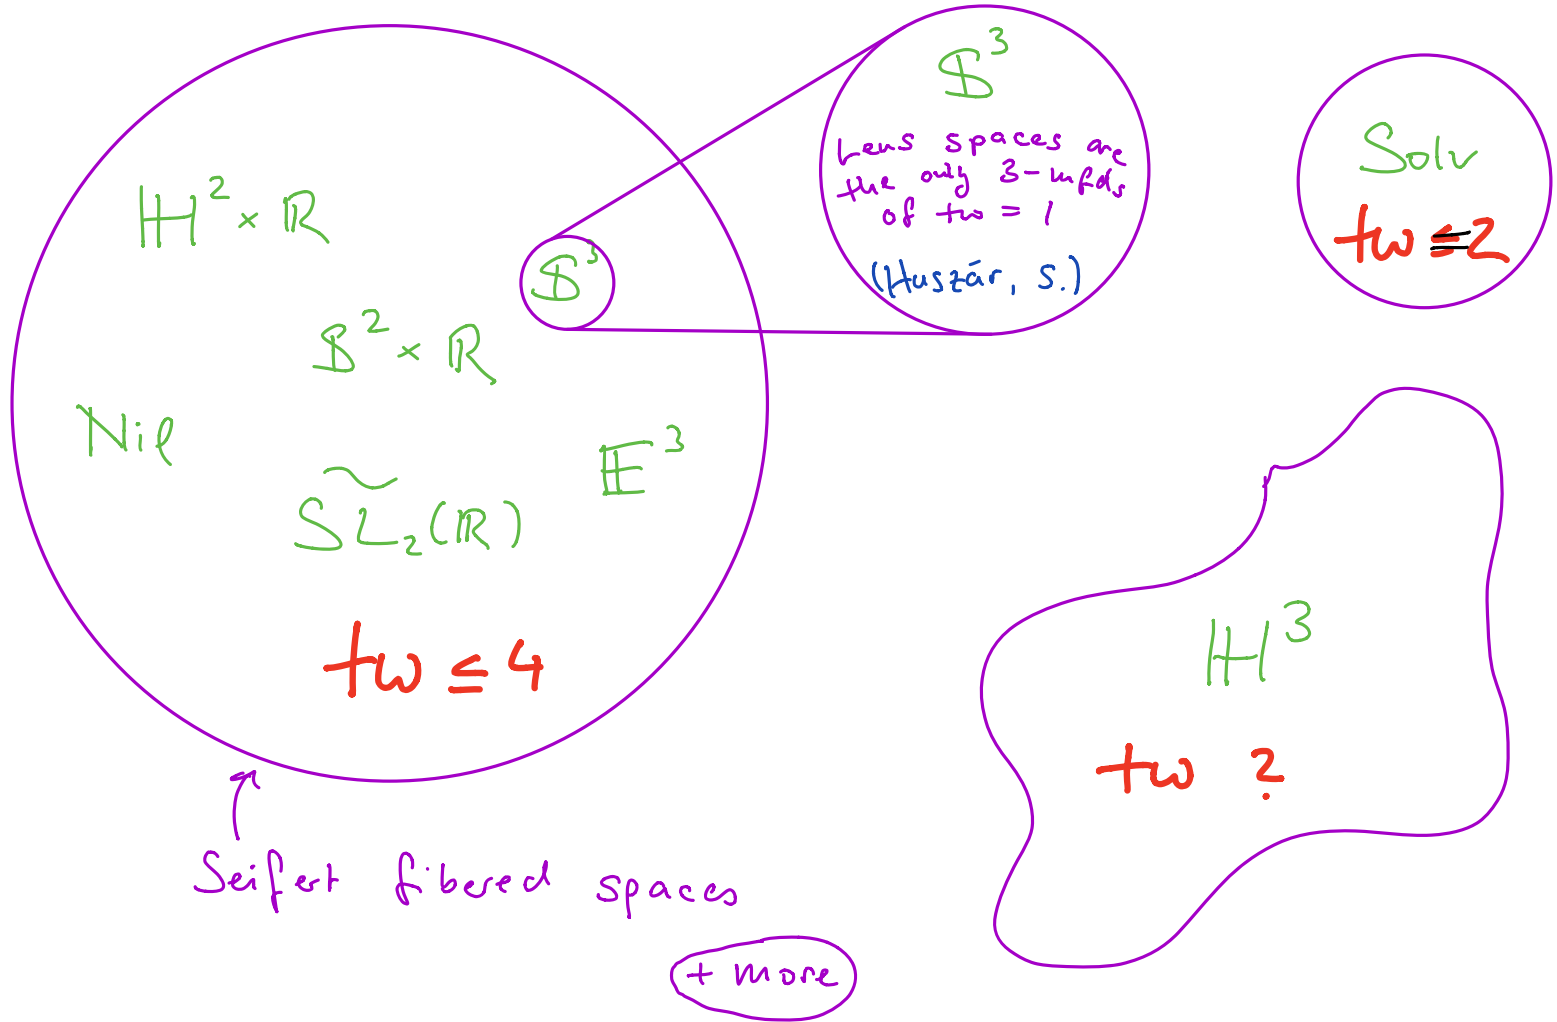 ℍ² × ℝ
𝕊³
𝕊² × ℝ
Nil
𝔼³
S͂L₂(ℝ)
tw ≤ 4
Seifert fibered spaces
+ more
𝕊³
Lens spaces are
the only 3-mfds
of tw = 1
(Huszár, S.)
Solv
tw = 2
ℍ³
tw ?